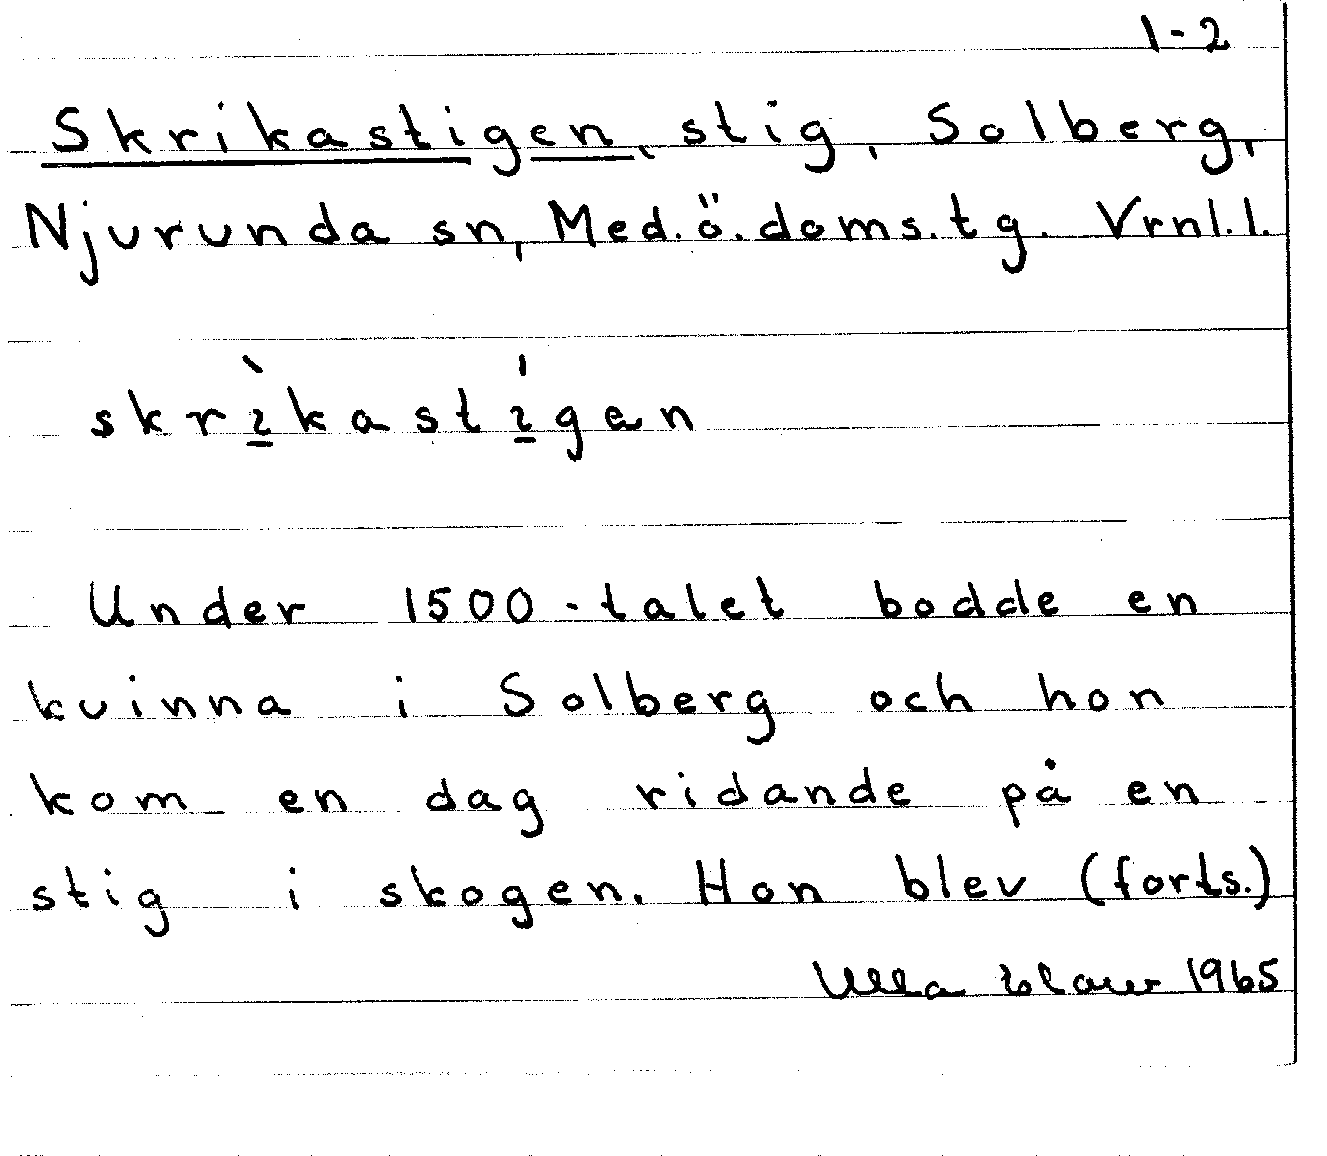 1-2
Skrikastigen, stig, Solberg,
Njurunda sn, Med. ö. doms. tg. Vrnl.l.
skrìkastígen
Under 1500-talet bodde en
kvinna i Solberg och hon
kom en dag ridande på en
stig i skogen. Hon blev (forts.)
Ulla 1965